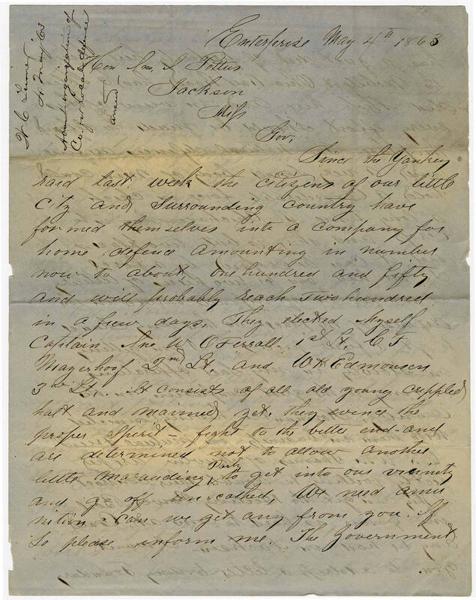 Enterprise May 4th 1863
Hon Jno J Pettus
Jackson
Miss
Gov.
Since the Yankey
raid last week the citizens of our little
City and Surrounding country have
formed themselves into a company for
home defence amounting in number
now to about One hundred and fifty
and will probably reach Two hundred
in a few days. They elected Myself
Captain Jno W O Ferrall 1st Lt. C F
2nd Lt. and W H Edmonson
3rd Lt. it consists of all old young crippled
halt and maimed yet they evince the
proper spirit - fight to the bitter end and
are determined not to allow another
little Marauding Party to get into our vicinity
and go off un scathed, We need amu
nition Can we get any from you If
so please inform me. The Government
4 May /63
organization of
Co. for local defence